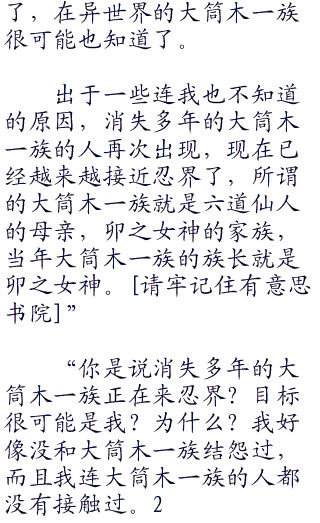 了，在异世界的大筒木一族
很可能也知道了。
出于一些连我也不知道
的原因，消失多年的大筒木
一族的人再次出现，现在已
经越来越接近忍界了，所谓
的大筒木一族就是六道仙人
的母亲，卯之女神的家族，
当年大筒木一族的族长就是
卯之女神。[请牢记住有意思
书院]”
“你是说消失多年的大
筒木一族正在来忍界？目标
很可能是我？为什么？我好
像没和大筒木一族结怨过，
而且我连大筒木一族的人都
没有接触过。2